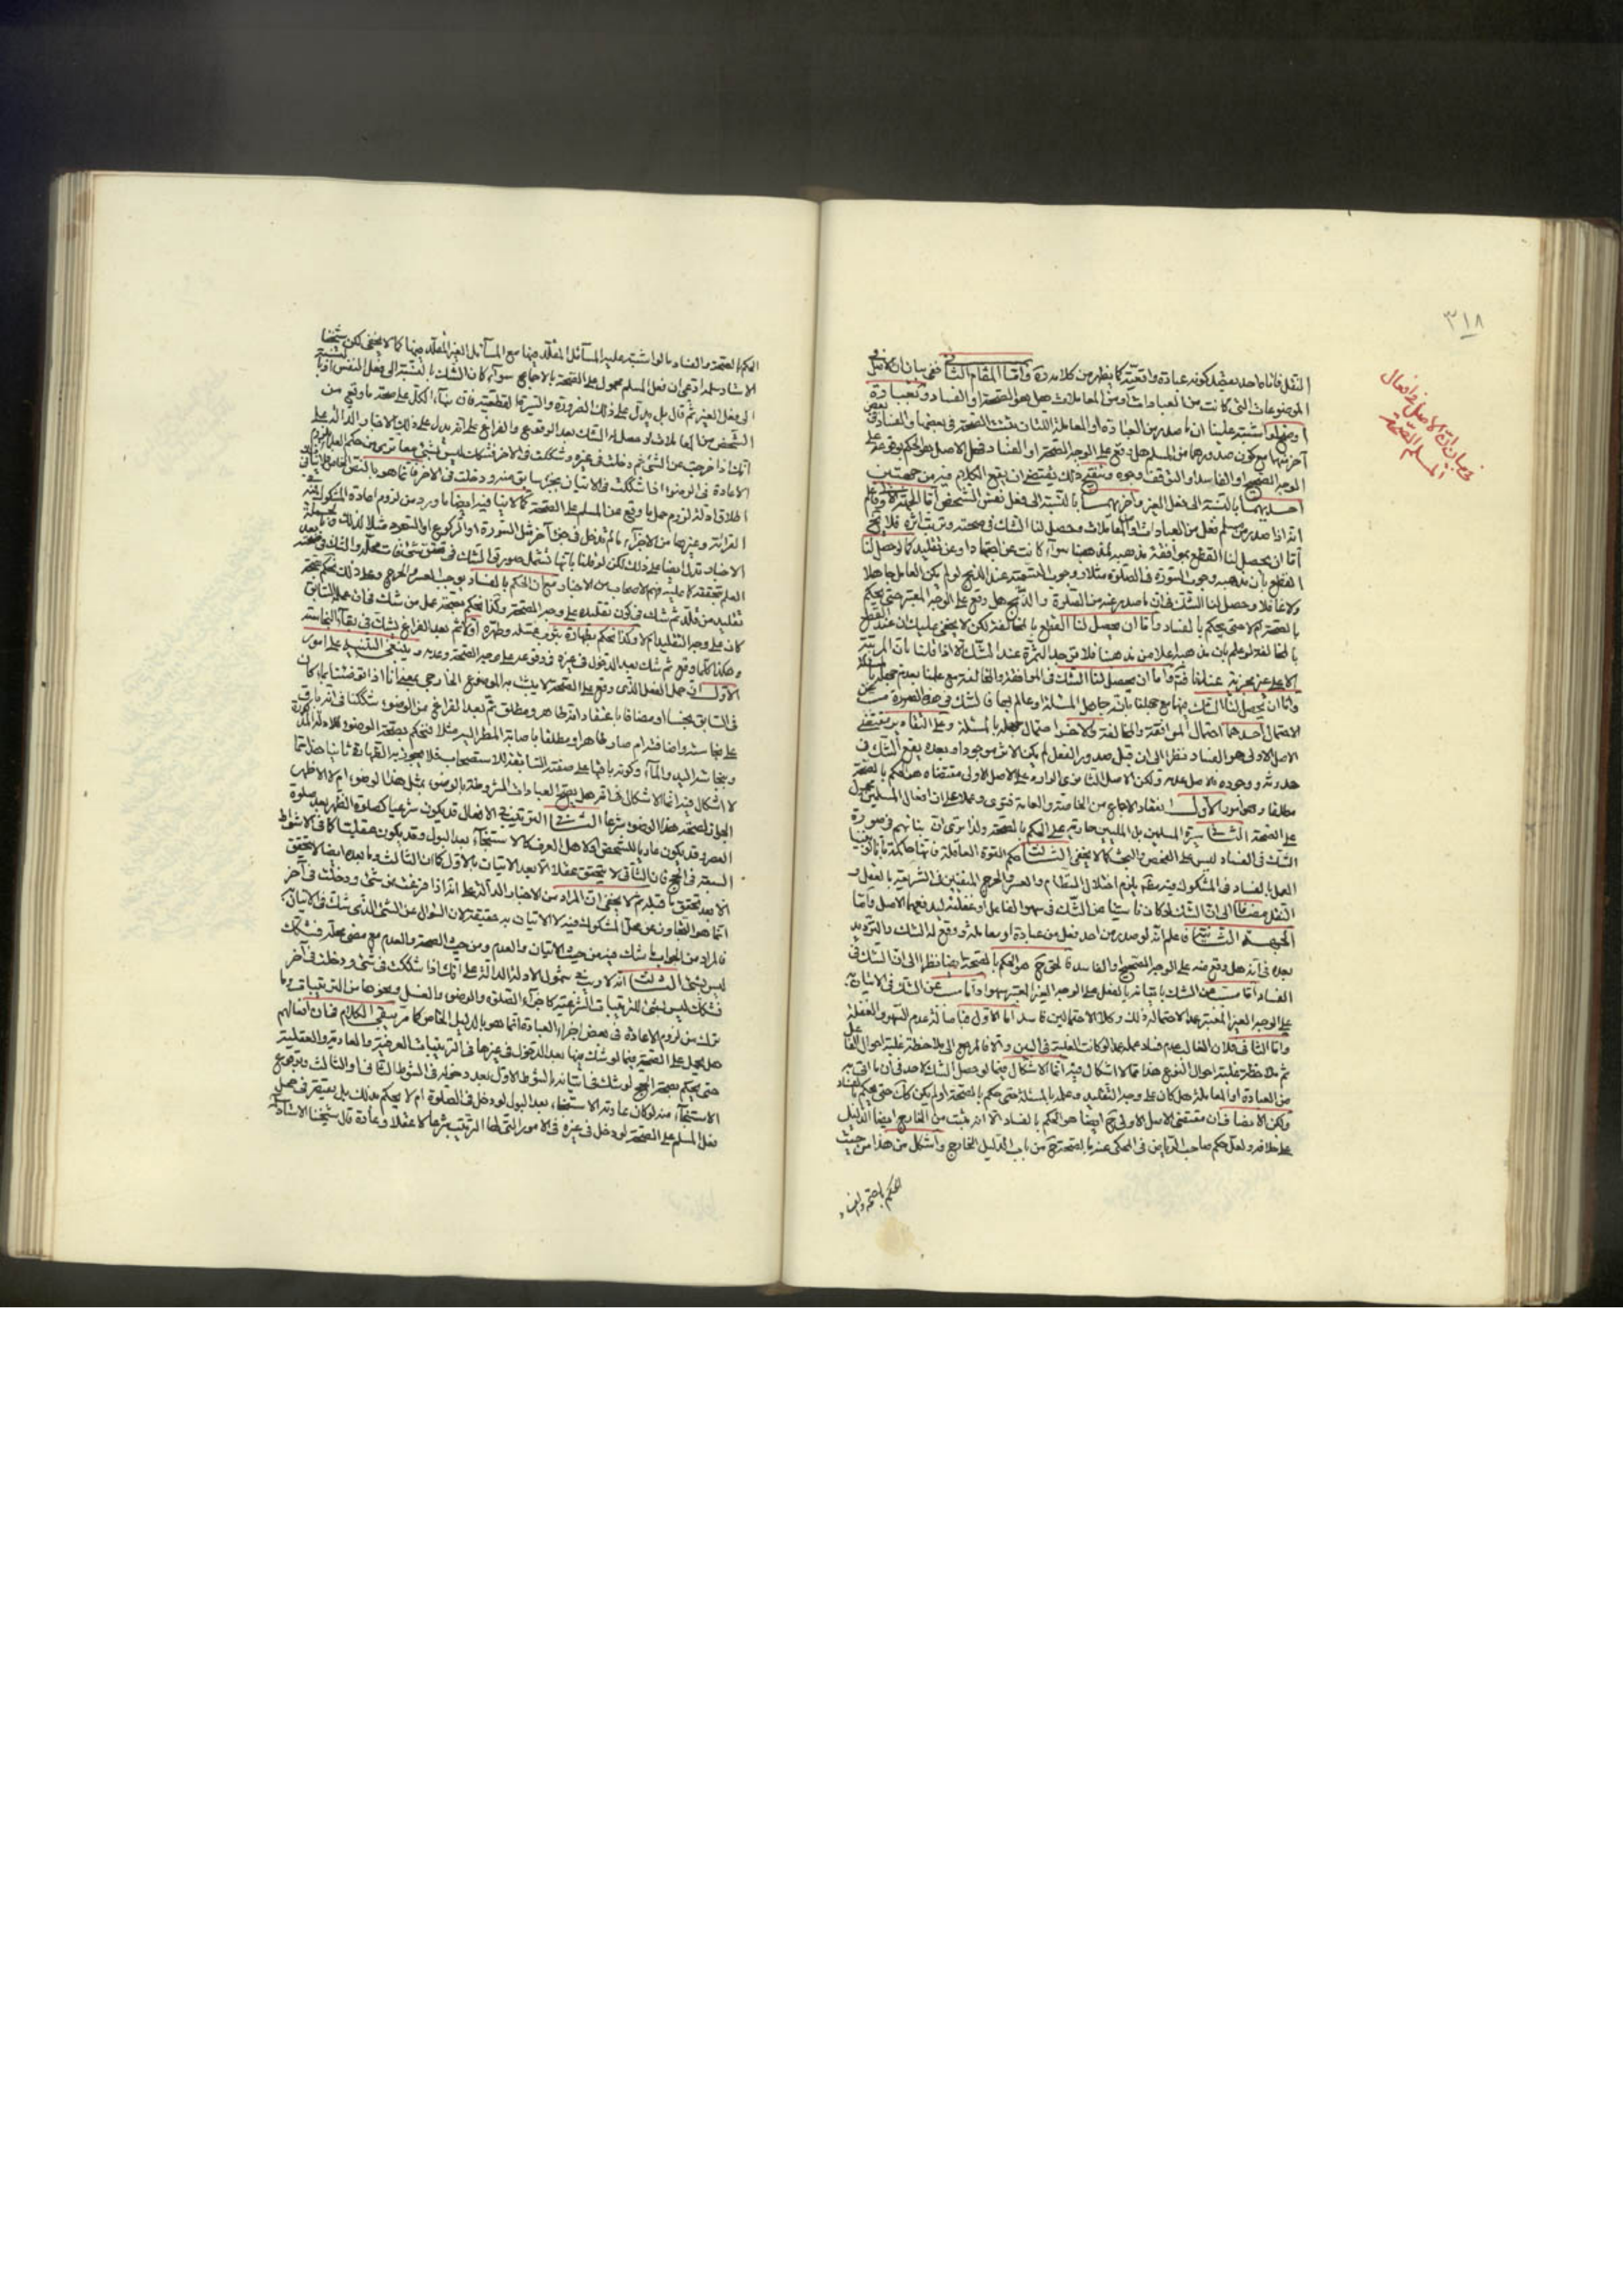 ٣١٨
في بيان ان الاصل في افعال
المسلم الصحة
النقل فانا ما حد بعضه كونه عبادة واقعية كما يظهر من كلامه وامّا المقام الثاني ففي بيان ان الاصل في
الموضوعات التي كانت من العبادات او من المعاملات هل هو الصحة او الفساد وبعبارة
اخرى لو اشتبه علينا ان ما صدر من العبادة او المعاملة اللتان يثبت الصحة في بعضها والفساد في بعض
آخر منها مع كون صدورهما من المسلم هل وقع على الوجه الصحة او الفساد فهل الاصل هو الحكم بوقوعه على
الوجه الصحيح او الفاسد او التوقف وجوه وتنقيح ذلك يقتضي ان يقع الكلام فيه من جهتين
احديهما بالنسبة الى فعل الغير واخريهما بالنسبة الى فعل نفس الشخص امّا الجهة الاولى فاعلم
انه اذا صدر من مسلم فعل من العبادات او المعاملات وحصل لنا الشك في صحته وترتب اثره فلا يخ
امّا ان يحصل لنا القطع بموافقة مذهبه لمذهبنا سواء كانت عن اجتهاد او عن تقليد كما لو حصل لنا
القطع بان مذهبه وجوب السورة في الصلوة مثلا ووجوب التسمية عند الذبح لو لم يكن العامل جاهلا
ولا غافلا وحصل لنا الشك في ان ما صدر عنه من الصلوة والذبح هل وقع على الوجه المعتبر حتى يحكم
بالصحة ام لا حتى يحكم بالفساد وامّا ان يحصل لنا القطع بالمخالفة لكن لا يخفى عليك ان عند القطع
بالمخالفة لو علم بان مذهبه اعلا من مذهبنا فلا توجد الثمرة عند الشك الا اذا قلنا بان المرتبة
الاعلى غير مجزية عندنا فتم وامّا ان يحصل لنا الشك في الموافقة والمخالفة مع علمنا بعدم جهله بالمسئلة
وامّا ان يحصل لنا الشك منها مع جهلنا بانه جاهل المسئلة او عالم بها فالشك في هذه الصورة من
الاحتمال احدهما احتمال الموافقة والمخالفة والآخر احتمال جهله بالمسئلة وعلى التقادير مقتضى
الاصل الاولى هو الفساد نظرا الى ان قبل صدور الفعل لم يكن الاثر موجودا وبعده يقع الشك في
حدوثه ووجوده فالاصل عدمه ولكن الاصل الثانوي الوارد على الاصل الاولى مقتضاه هو الحكم بالصحة
مطلقا وهي امور الاول انعقاد الاجماع من الخاصة والعامة فتوى وعملا على ان افعال المسلمين محمول
على الصحة الثاني سيرة المسلمين بل المليين جارية على الحكم بالصحة ولذا ترى ان بنائهم في صورة
الشك في الفساد ليس على الفحص والبحث كما لا يخفى الثالث حكم القوة العاقلة فانها حاكمة بانا لو بنينا
العمل بالفساد في المشكوك فيه يلزم اختلال النظام والعسر والحرج المنفيين في الشريعة بالعقل و
النقل مضافا الى ان الشك لو كان ناشئا عن الشك في سهو الفاعل او غفلته ليدفعهما الاصل وامّا
الجهة الثانية فاعلم انه لو صدر من احد فعل من عبادة او معاملة ووقع له الشك والترديد
بعده في انه هل وقع منه على الوجه الصحيح او الفاسد فالحق ح هو الحكم بالصحة ايضا نظرا الى ان الشك في
الفساد امّا مسبب عن الشك بايتيانه بالفعل على الوجه الغير المعتبر سهوا وامّا مسبب عن الشك في الاتيان به
على الوجه الغير المعتبر عمدا لاحتماله ذلك وكلا الاحتمالين فاسد امّا الاول فباصالة عدم السهو والغفلة
وامّا الثاني فلان الغالب عدم فساد عمله عمدا لو كانت الغلبة في البين والا فالمرجع الى ملاحظة غلبة احوال الفاعل
ثم ملاحظة غلبة احوال النوع هذا مما لا اشكال فيه انما الاشكال فيما لو حصل الشك لاحد في ان ما اتى به
من العبادة او المعاملة هل كان على وجه التقليد وعلمه بالمسئلة حتى يحكم بالصحة او لم يكن كك حتى يحكم بالفساد
ولكن الانصاف ان مقتضى الاصل الاولى ح ايضا هو الحكم بالفساد الا انه يثبت من الخارج ايضا الدليل
على خلافه ولعل حكم صاحب الرياض في المحكى عنه بالصحة ح من باب الدليل الخارج واشكل من هذا من حيث
الحكم بالصحة والفساد
الحكم بالصحة والفساد ما لو اشتبه عليه المسائل المقلّد فيها مع المسائل الغير المقلّد فيها كما لا يخفى لكن شيخنا
الاستاد سلمه ادعى ان فعل المسلم محمول على الصحة بالاجماع سواء كان الشك بالنسبة الى فعل النفس او بالنسبة
الى فعل الغير ثم قال بل يدل على ذلك الضرورة والسيرة القطعية فان بناء الكل على صحة ما وقع من
الشخص من المعاملات لو حصل له الشك بعد الوقوع والفراغ على انه يدل على ذلك الاخبار الدالة على
انك اذا خرجت عن الشئ ثم دخلت في غيره وشككت في الآخر فشكك ليس بشئ وما ترى من حكم العلماء بلزوم
الاعادة في الوضوء اذا شككت في الاتيان بجزء سابق منه ودخلت في الآخر فانما هو بالنص الخاص فلا ينافي
اطلاق ادلة لزوم حمل ما وقع من المسلم على الصحة كما لا ينافيه ايضا ما ورد من لزوم اعادة المشكوك فيه في
القرائة وغيرها من الاجزاء ما لم تدخل في جزء آخر مثل السورة او الركوع او السجود مثلا لذلك وبالجملة
الاخبار تدل ايضا على ذلك لكن لو قلنا بانها تشمل صورتي الشك في تحقق شئ فات محله والشك في صحته بعد
العلم بتحققه كما عليه فهم الاصحاب من الاخبار مع ان الحكم بالفساد يوجب العسر والحرج وعلى ذلك يحكم بصحة
تقليد من قلد ثم شك في كون تقليده على وجه الصحة وكذا يحكم بصحة عمل من شك في ان عمله السابق
كان على وجه التقليد ام لا وكذا يحكم بطهارة ثوب غسله وطهره اولا ثم بعد الفراغ يشك في بقاء النجاسة
وهكذا كلما وقع ثم شك بعد الدخول في غيره في وقوعه على وجه الصحة وعدمه وينبغي التنبيه على امور
الاول ان حمل الفعل الذي وقع على الصحة لا يثبت به الموضوع الخارجي بمعنى انا اذا توضئنا بماء كان
في السابق نجسا او مضافا باعتقاد انه طاهر ومطلق ثم بعد الفراغ من الوضوء شككنا في انه باق
على نجاسته واضافته ام صار طاهرا ومطلقا باصابة المطر اليه مثلا فنحكم بصحة الوضوء للادلة المذكورة
وبنجاسة اليد والماء وكونه باقيا على صفته السابقة للاستصحاب فلا يجوز به الطهارة ثانيا هذا مما
لا اشكال فيه انما الاشكال في انه هل يصح العبادات المشروطة بالوضوء بمثل هذا الوضوء ام لا الاظهر
الجواز لصحة هذا الوضوء شرعا الثاني الترتيب في الافعال قد يكون شرعيا كصلوة الظهر بعد صلوة
العصر وقد يكون عاديا للشخص او لاهل العرف كالاستنجاء بعد البول وقد يكون عقليا كما في الاشواط
السبعة في الحج فان الثاني لا يتحقق عقلا الا بعد الاتيان بالاول كما ان الثالث وما بعده ايضا لا يتحقق
الا بعد تحقق ما قبله ثم لا يخفى ان المراد من الاخبار الدالة على انه اذا فرغت من شئ ودخلت في آخر
انما هو التجاوز عن محل المشكوك فيه لا الاتيان به حقيقة لان السؤال عن الشئ الذي شك في الاتيان
فالمراد من الجواب ما شك فيه من حيث الاتيان والعدم ومن حيث الصحة والعدم مع مضى محله فشكك
ليس بشئ الثالث انه لا ريب في شمول الادلة الدالة على انك اذا شككت في شئ ودخلت في آخر
فشكك ليس بشئ للترتيبات الشرعية كاجزاء الصلوة والوضوء والغسل ونحوها من الترتيبات وما
ترى من لزوم الاعادة في بعض اجزاء العبادة فانما هو بالدليل الخاص كما مر بقي الكلام في ان افعالهم
هل يحمل على الصحة فيما لو شك فيها بعد الدخول في غيرها في الترتيبات العرفية والعادية والعقلية
حتى يحكم بصحة الحج لو شك في اتيانه الشوط الاول بعد دخوله في الشوط الثاني او الثالث وبوقوع
الاستنجاء منه لو كان عادته الاستنجاء بعد البول لو دخل في الصلوة ام لا يحكم بذلك بل يقتصر في حمل
فعل المسلم على الصحة لو دخل في غيره في الامور التي لها الترتيب شرعا لا عقلا وعادة قال شيخنا الاستاد